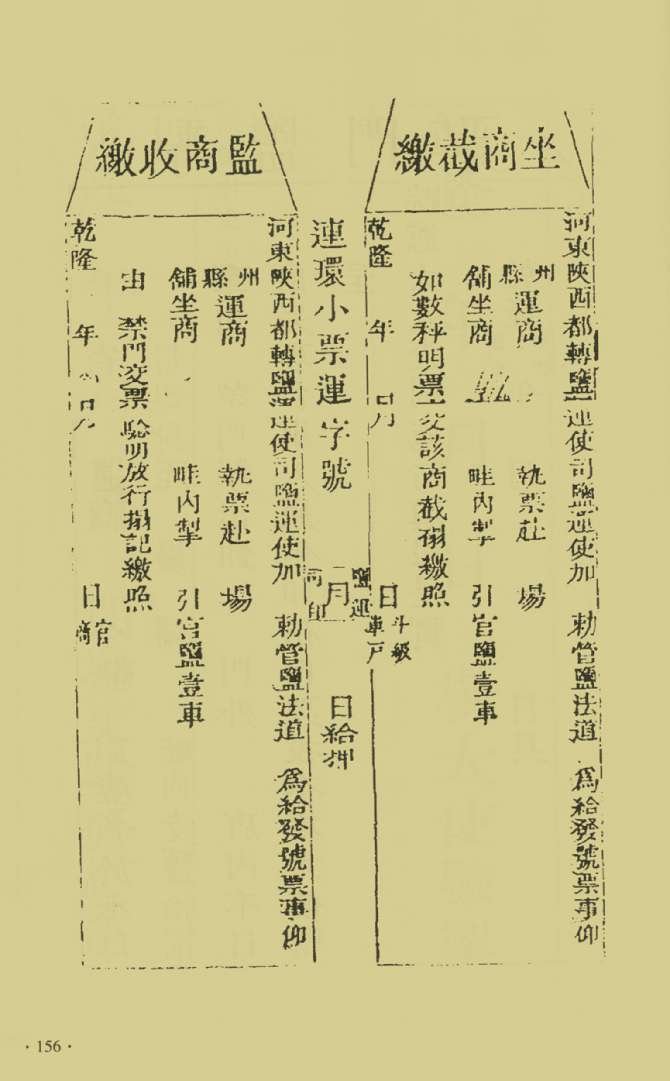 坐商截繳
河東陝西都轉鹽運使司鹽運使加 勅管鹽法道 爲給發號票事仰
州縣運商 執票赴 場
舖坐商 畦內掣 引官鹽壹車
如數秤明票 交該商截 繳照
乾隆 年 月 日斗級車戶
連環小票運字號 鹽運司印 二月 日給押
監商收繳
河東陝西都轉鹽運使司鹽運使加 勅管鹽法道 爲給發號票事仰
州縣運商 執票赴 場
舖坐商 畦內掣 引官鹽壹車
由 禁門交票驗明放行 記繳照
乾隆 年 月 日官商
·156·